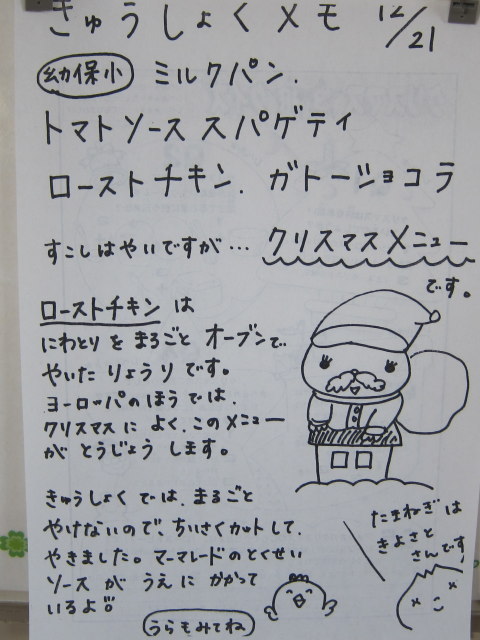 きゅうしょくメモ 12/21
幼保小 ミルクパン.
トマトソース スパゲティ
ローストチキン. ガトーショコラ
すこしはやいですが… クリスマスメニュー
です。
ローストチキン は
にわとり を まるごと オーブンで
やいた りょうり です。
ヨーロッパ の ほう では、
クリスマス に よく、この メニュー
が とうじょう します。
きゅうしょく では、まるごと
やけないので、ちいさく カット して、
やきました。マーマレード の とくせい
ソース が うえ に かかって
いるよ!!
たまねぎ は
きよさと
さんです
うらもみてね